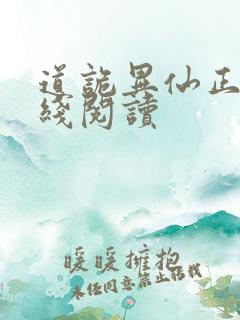 道詭異仙正
綫閱讀
暖暖擁抱
同意禁止